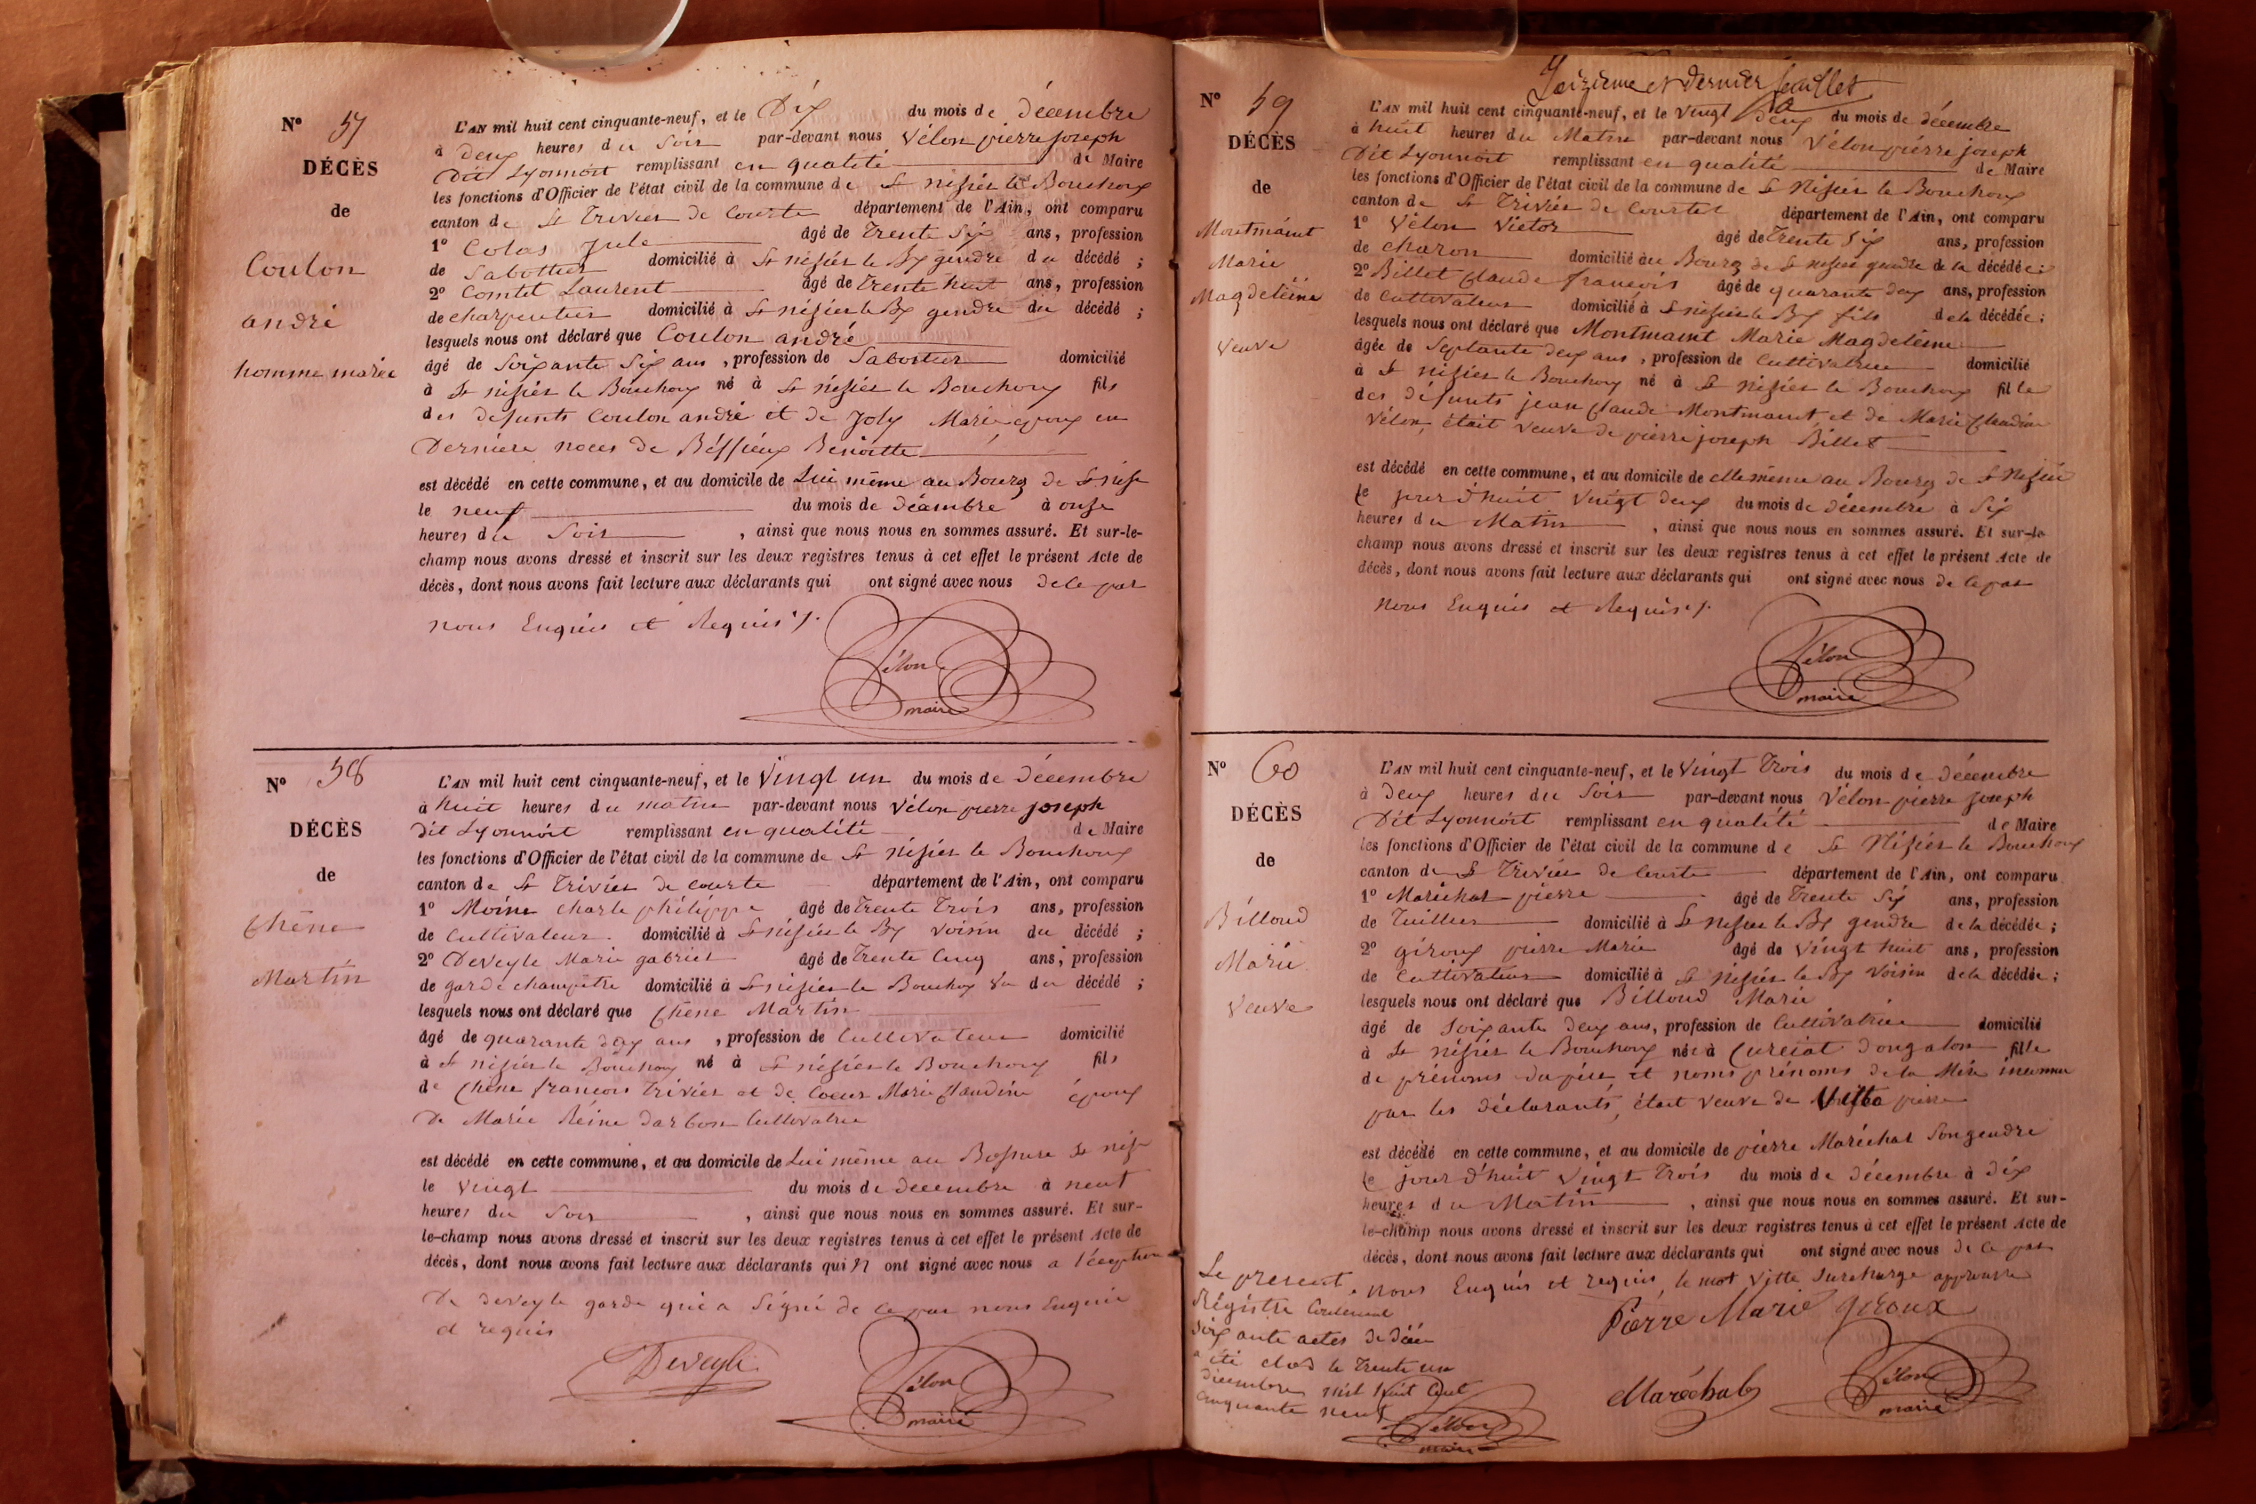 N° 57
DÉCÈS
de
Coulon
andré
homme marié
L'AN mil huit cent cinquante-neuf, et le Dix du mois de décembre
à deux heures du Soir par-devant nous Vélon pierre joseph
Dit Lyonnoit remplissant en qualité de Maire
les fonctions d'Officier de l'état civil de la commune de St nisier le Bouchoux
canton de St Trivier de Courte département de l'Ain, ont comparu
1° Colas jule âgé de Trente Six ans, profession
de Sabottier domicilié à St nisier le Bx gendre du décédé ;
2° Comtet Laurent âgé de Trente huit ans, profession
de charpentier domicilié à St nisier le Bx gendre du décédé ;
lesquels nous ont déclaré que Coulon andré
âgé de Soixante Six ans, profession de Sabottier domicilié
à St nisier le Bouchoux né à St nisier le Bouchoux fils
des défunts Coulon andré et de Joly Marie epoux en
Derniere noces de Béffieux Benoitte
est décédé en cette commune, et au domicile de Lui même au Bourg de St nisr
le neuf du mois de décembre à onze
heures du Soir, ainsi que nous nous en sommes assuré. Et sur-le-
champ nous avons dressé et inscrit sur les deux registres tenus à cet effet le présent Acte de
décès, dont nous avons fait lecture aux déclarants qui ont signé avec nous de ce par
nous Enquis et Requis ./.
Vélon
maire
N° 58
DÉCÈS
de
Chêne
Martin
L'AN mil huit cent cinquante-neuf, et le Vingt un du mois de décembre
à huit heures du matin par-devant nous Vélon pierre joseph
dit Lyonnoit remplissant en qualité de Maire
les fonctions d'Officier de l'état civil de la commune de St nisier le Bouchoux
canton de St Trivier de courte département de l'Ain, ont comparu
1° Moine charle philippe âgé de Trente Trois ans, profession
de Cultivateur domicilié à St nisier le Bx voisin du décédé ;
2° Deveyle Marie gabriel âgé de Trente Cinq ans, profession
de garde champêtre domicilié à St nisier le Bouchoux du décédé ;
lesquels nous ont déclaré que Chêne Martin
âgé de quarante deux ans, profession de Cultivateur domicilié
à St nisier le Bouchoux né à St nisier le Bouchoux fils
de Chêne francois Trivier et de Coeur Marie Claudine époux
De Marie Reine Darbon Cultivatrice
est décédé en cette commune, et au domicile de Lui même au St nisr
le Vingt du mois de décembre à neuf
heures du Soir, ainsi que nous nous en sommes assuré. Et sur-
le-champ nous avons dressé et inscrit sur les deux registres tenus à cet effet le présent Acte de
décès, dont nous avons fait lecture aux déclarants qui n ont signé avec nous a l'éxeption
De Deveyle garde qui a Signé de ce par nous Enquis
et requis
Deveyle
Vélon
maire
et dernier feuillet
N° 59
DÉCÈS
de
Montmaint
Marie
Magdeleine
Veuve
L'AN mil huit cent cinquante-neuf, et le Vingt deux du mois de décembre
à huit heures du Matin par-devant nous Vélon pierre joseph
Dit Lyonnoit remplissant en qualité de Maire
les fonctions d'Officier de l'état civil de la commune de St Nisier le Bouchoux
canton de St Trivier de Courtes département de l'Ain, ont comparu
1° Vélon Victor âgé de Trente Six ans, profession
de charon domicilié au Bourg de St nisier gendre de la décédée ;
2° Billet Claude françois âgé de quarante deux ans, profession
de Cultivateur domicilié à St nisier le Bx fils de la décédée ;
lesquels nous ont déclaré que Montmaint Marie Magdeleine
âgée de Septante deux ans, profession de Cultivatrice domicilié
à St nisier le Bouchoux né à St nisier le Bouchoux fille
des défunts jean Claude Montmaint et de Marie Claudine
Vélon, était veuve de pierre joseph Billet
est décédé en cette commune, et au domicile de elle même au Bourg de St Nisier
le jour d'huit Vingt deux du mois de décembre à Six
heures du Matin, ainsi que nous nous en sommes assuré. Et sur-le-
champ nous avons dressé et inscrit sur les deux registres tenus à cet effet le présent Acte de
décès, dont nous avons fait lecture aux déclarants qui ont signé avec nous de ce par
nous Enquis et Requis ./.
Vélon
maire
N° 60
DÉCÈS
de
Billoud
Marie
Veuve
L'AN mil huit cent cinquante-neuf, et le Vingt Trois du mois de décembre
à deux heures du Soir par-devant nous Vélon pierre joseph
Dit Lyonnoit remplissant en qualité de Maire
les fonctions d'Officier de l'état civil de la commune de St Nisier le Bouchoux
canton de St Trivier de Courte département de l'Ain, ont comparu
1° Maréchal pierre âgé de Trente Six ans, profession
de Tuillier domicilié à St nisier le Bx gendre de la décédée ;
2° giroux pierre Marie âgé de Vingt huit ans, profession
de Cultivateur domicilié à St nisier le Bx Voisin de la décédée ;
lesquels nous ont déclaré que Billoud Marie
âgé de Soixante deux ans, profession de Cultivatrice domicilié
à St nisier le Bouchoux née à Curciat dongalon fille
de prénoms du père et noms prénoms de la Mère inconnu
par les déclarants, était Veuve de Vitte pierre
est décédé en cette commune, et au domicile de pierre Maréchal Son gendre
le jour d'huit Vingt Trois du mois de décembre à dix
heures du Matin, ainsi que nous nous en sommes assuré. Et sur-
le-champ nous avons dressé et inscrit sur les deux registres tenus à cet effet le présent Acte de
décès, dont nous avons fait lecture aux déclarants qui ont signé avec nous de ce par
nous Enquis et requis, le mot Vitte Surcharge approuvée
Pierre Marie giroux
Maréchal
Vélon
maire
Le présent
Régistre Contenant
Soixante actes de décès
a été clos le Trente un
Décembre mil huit Cent
Cinquante neuf
Vélon
maire